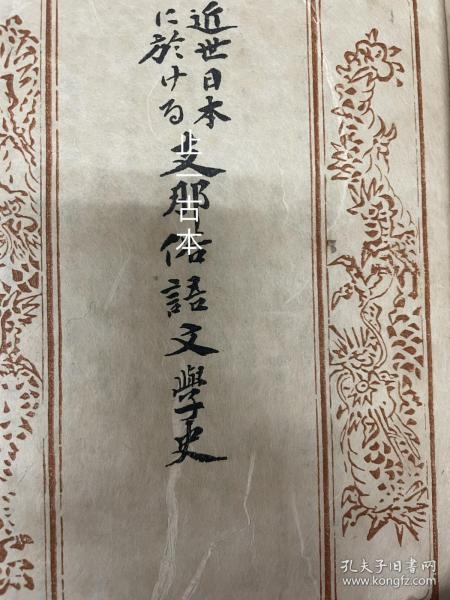 近世日本
に於ける
支那俗語文學史
上一古本
孔夫子旧书网
www.kongfz.com